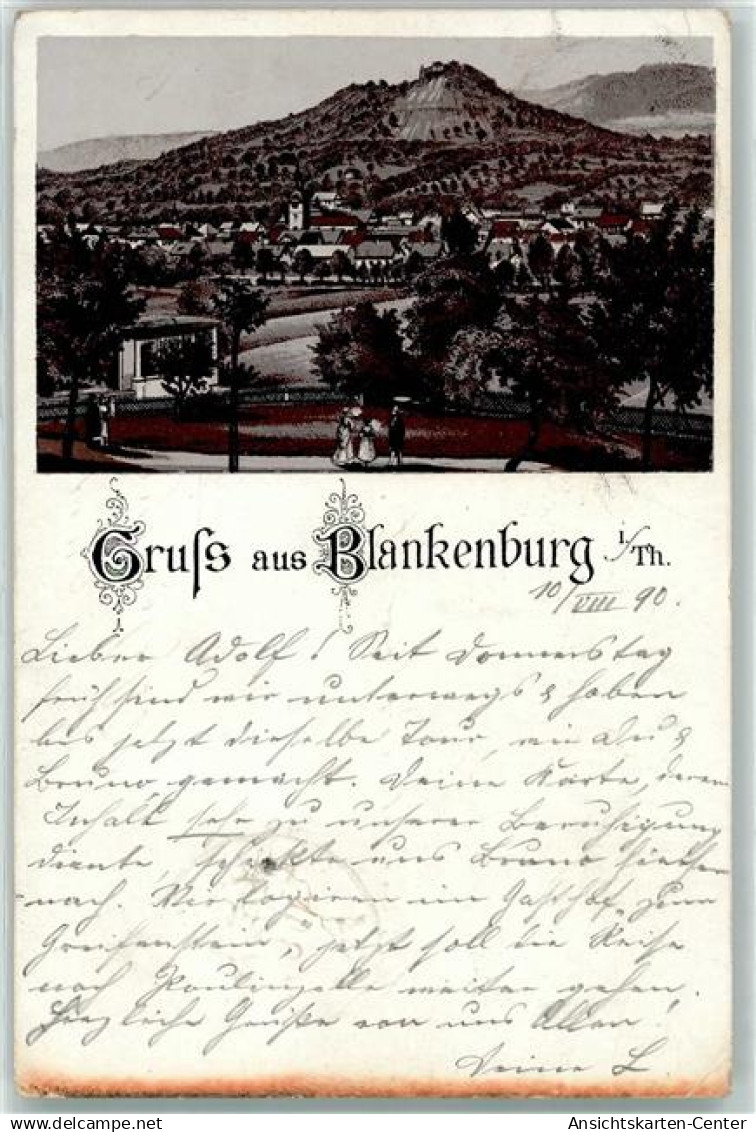 Gruſs aus Blankenburg i/Th.
10/VIII 90.
Lieber Adolf! Seit Donnerstag
früh sind wir unterwegs & haben
bis jetzt dieselbe Tour, wie Du &
Bruno, gemacht. Deine Karte, deren
Inhalt sehr zu unserer Beruhigung
diente, schickte uns Bruno hierher
nach. Wir logiren im Gasthof zum
Greifenstein, jetzt soll die Reise
nach Paulinzelle weiter gehen.
Herzliche Grüße von uns Allen!
Deine L.
Ansichtskarten-Center